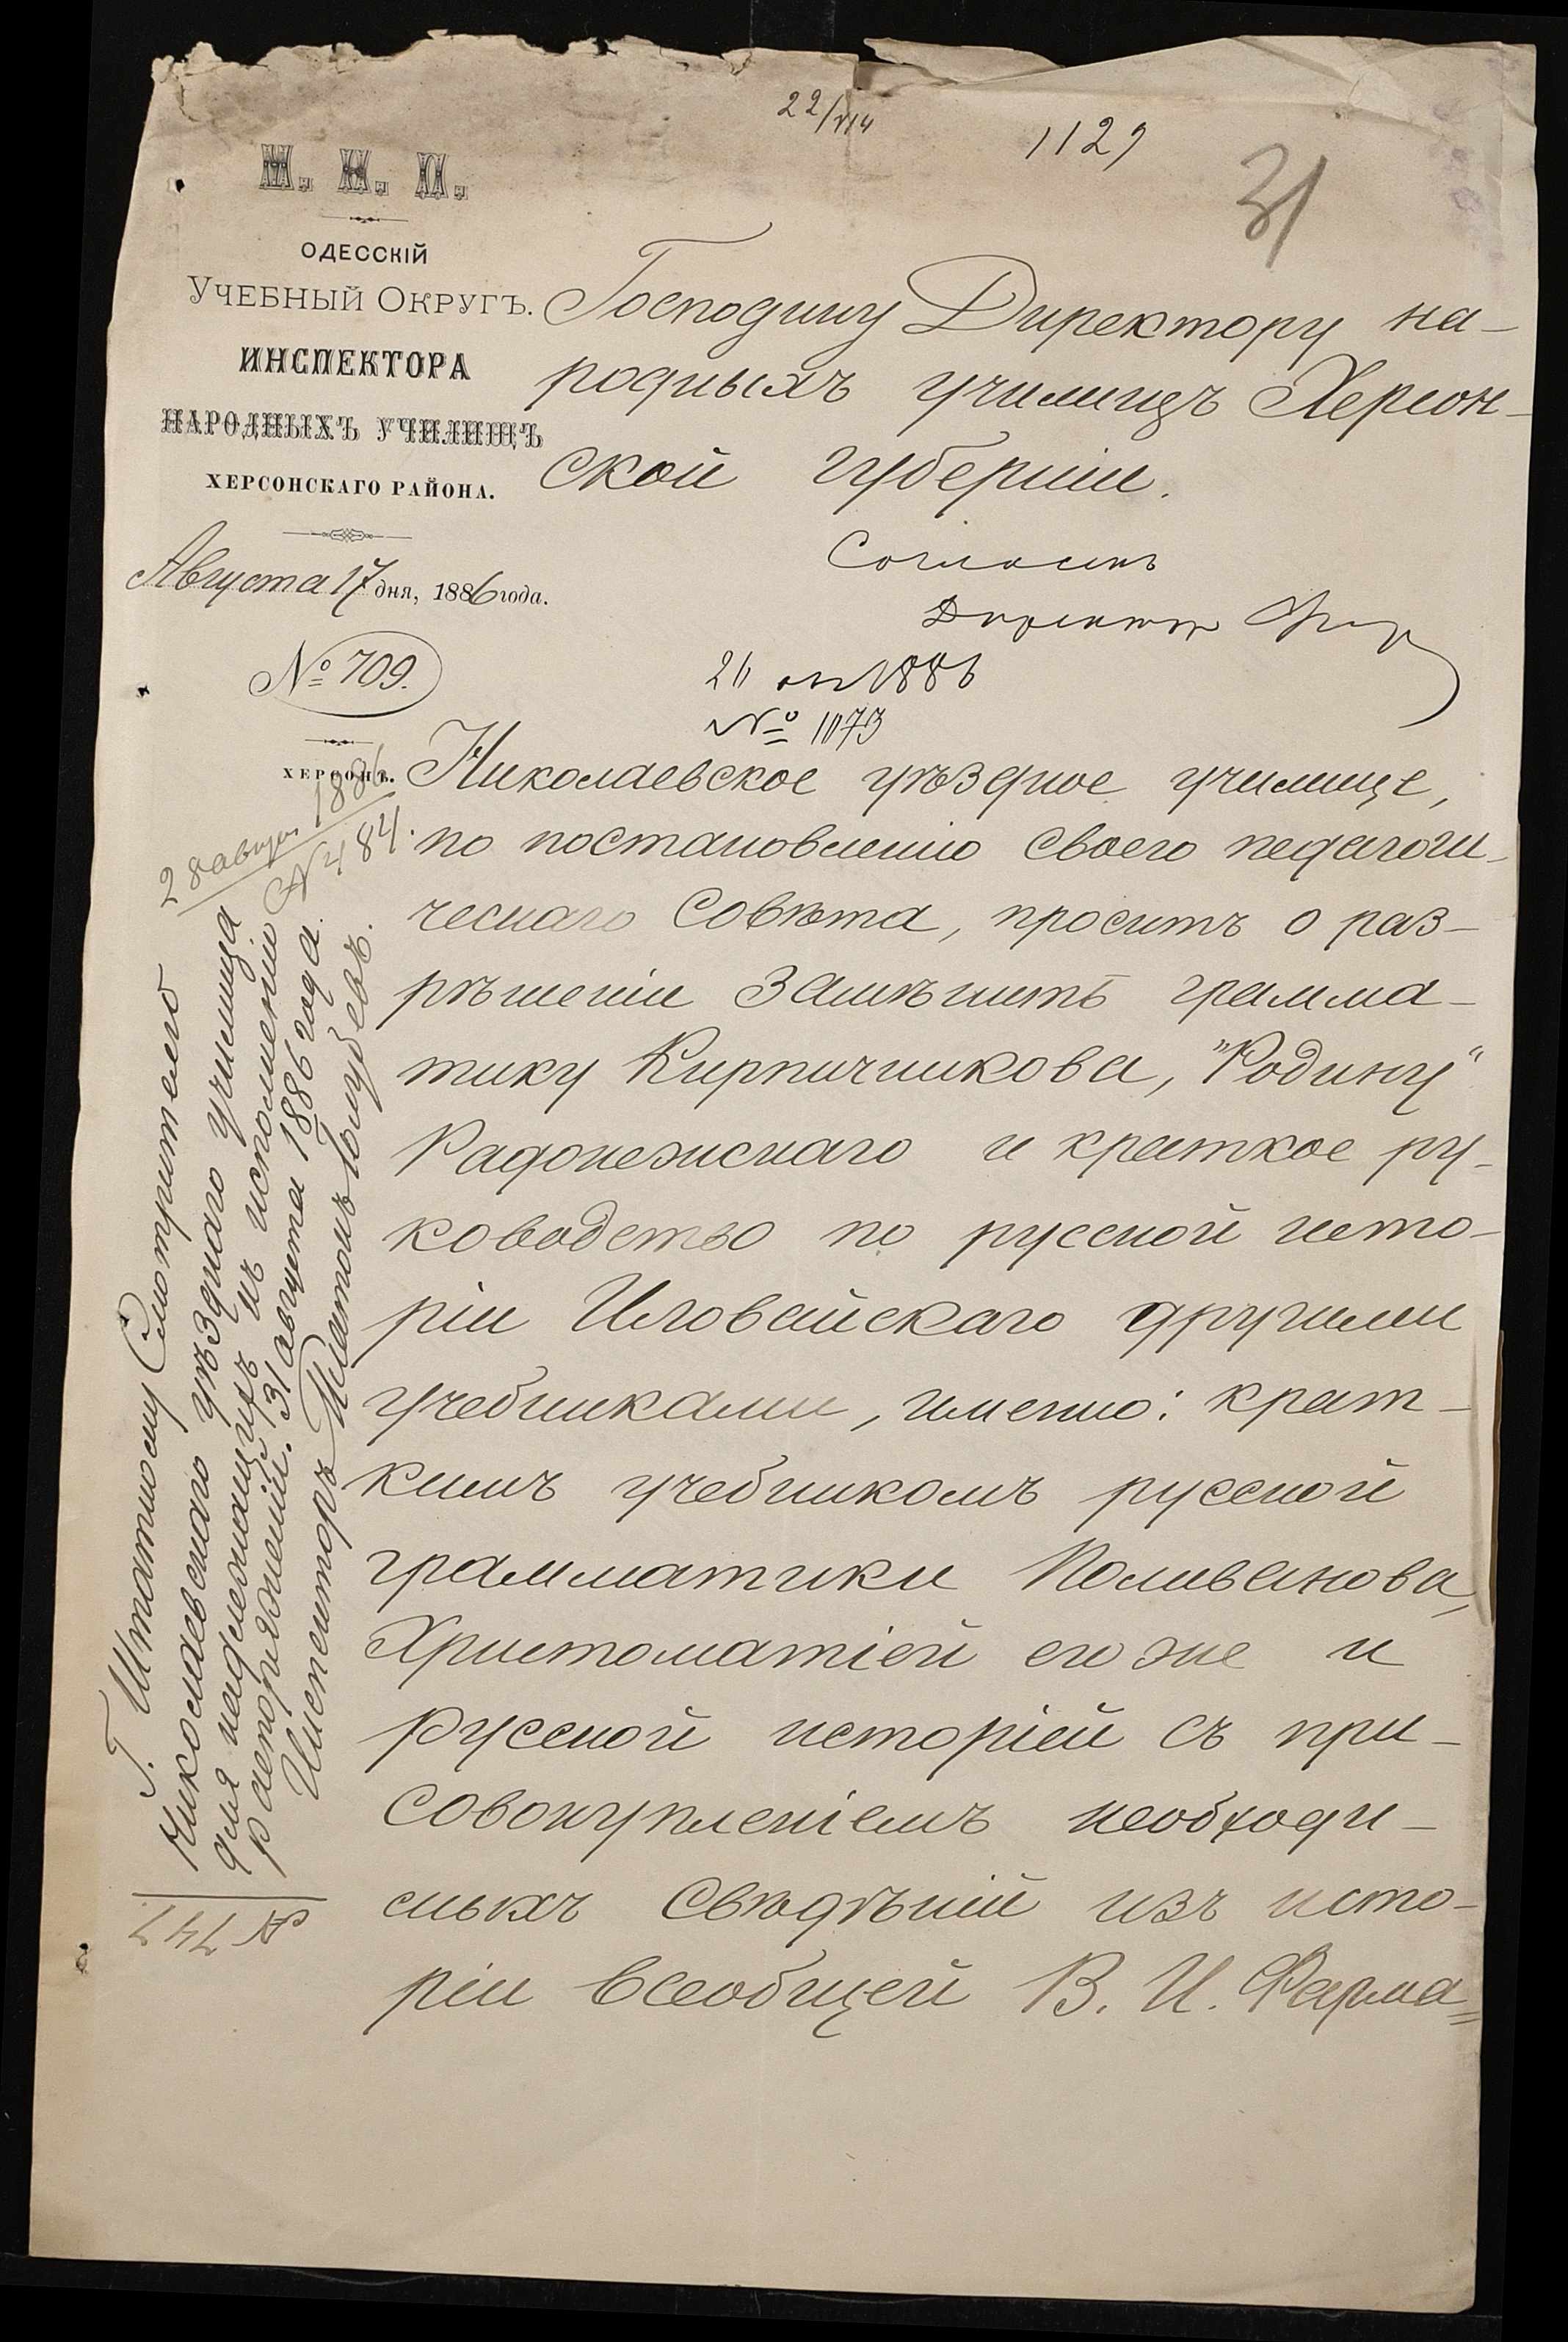 22/VIII
1129
31
М. Н. П.
ОДЕССКІЙ
УЧЕБНЫЙ ОКРУГЪ.
ИНСПЕКТОРА
НАРОДНЫХЪ УЧИЛИЩЪ
ХЕРСОНСКАГО РАЙОНА.
Августа 17 дня, 1886 года.
№ 709.
ХЕРСОНЪ.
Господину Директору на-
родныхъ училищъ Херсон-
ской губерніи.
Согласенъ
Директоръ
1886
№ 1073
Николаевское уѣздное училище,
по постановленію своего педагоги-
ческаго Совѣта, проситъ о раз-
рѣшеніи замѣнить грамма-
тику Кирпичникова, "Родину"
Радонежскаго и краткое ру-
ководство по русской исто-
ріи Иловайскаго другими
учебниками, именно: крат-
кимъ учебникомъ русской
грамматики Поливанова,
Христоматіей его же и
русской исторіей съ при-
совокупленіемъ необходи-
мыхъ свѣдѣній изъ исто-
ріи всеобщей В. И. Фарма-
28 августа 1886
№ 484.
Г. Штатному Смотрителю
Николаевскаго уѣзднаго училища
для надлежащихъ къ исполненію
распоряженій. 31 августа 1886 года.
Инспекторъ Платонъ Голубевъ.
№ 747